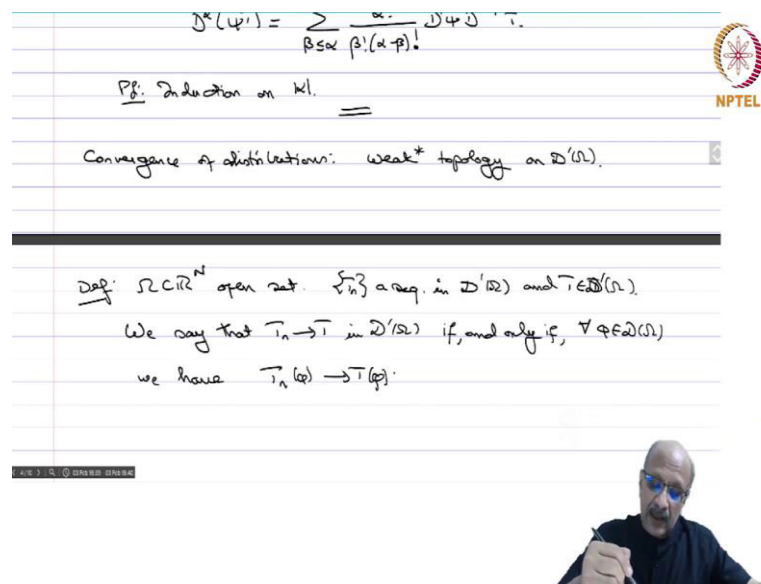 D^α(ψT) = Σ_{β≤α} α!/(β!(α-β)!) D^βψ D^{α-β}T.
Pf: Induction on |α|.
NPTEL
Convergence of distributions: weak* topology on D'(Ω).
Def: Ω⊂ℝ^N open set. {T_n} a seq. in D'(Ω) and T∈D'(Ω).
We say that T_n → T in D'(Ω) if, and only if, ∀ φ∈D(Ω)
we have T_n(φ) → T(φ).